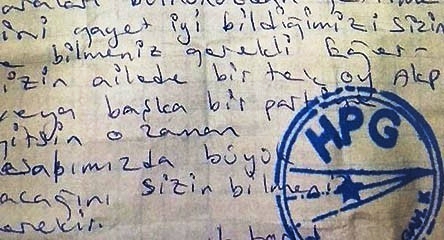 ini gayet iyi bildiğimizi sizin
bilmeniz gerekli Eğer
izin ailede bir tek oy Akp
veya başka bir
gitsin o zaman
esabımızda büyü
acağını sizin
erekir.
HPG